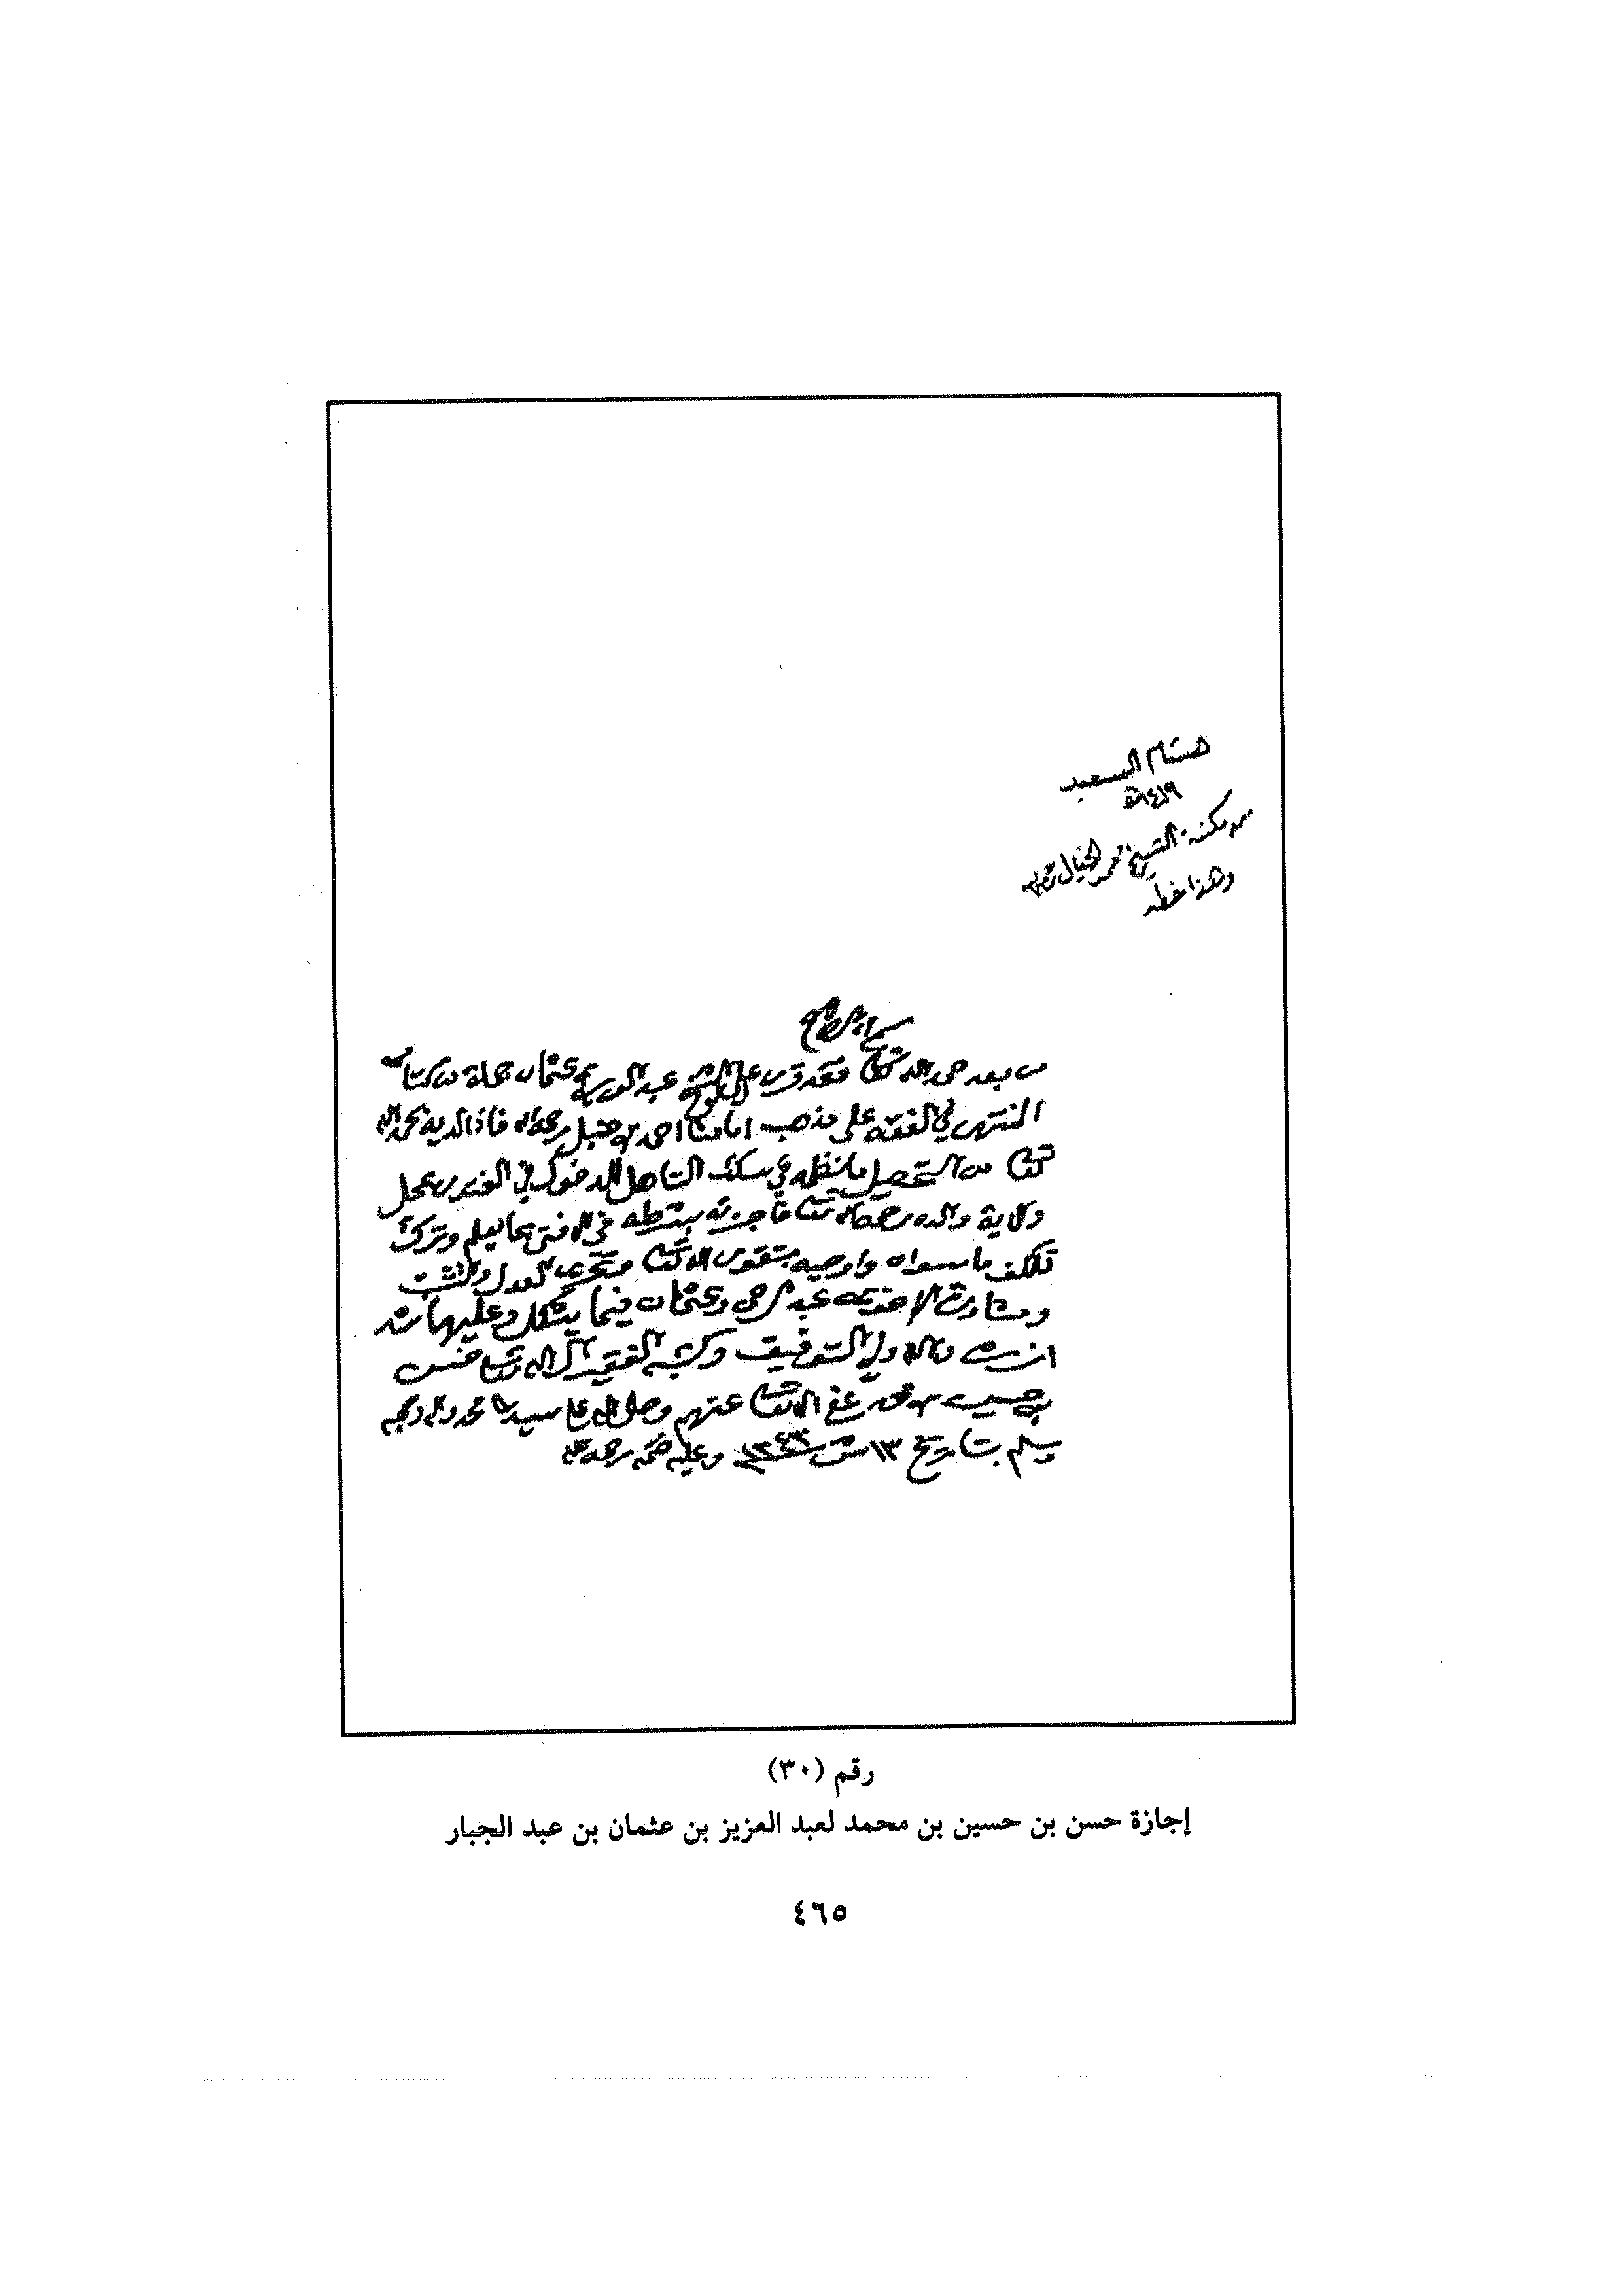 هشام السعيد
١٤١٩هـ
من مكتبة الشيخ محمد الخيال
وهذا خطه
من بعد حمد الله تعالى فقد قرى علي الشيخ عبد العزيز بن عثمان جملة من كتاب
المنتهى في الفقه على مذهب امامنا احمد بن حنبل رحمه الله فاذا لديه بحمد الله
تعالى من التحصيل ما ينظمه في سلك التأهل للدخول في
ولاية والده رحمه الله تعالى فاجزته بشرطه في الافتى بما يعلم وترك
تكلف ما سواه واوصيه بتقوى الله تعالى وتحري العدل والتثبت
ومشاورة الاخوين عبد الرحمن وعثمان فيما يشكل وعليهما
والله ولي التوفيق وكتبه الفقير الى الله تعالى حسن
بن حسين بن محمد عفى الله تعالى عنهم وصلى الله على سيدنا محمد واله وصحبه
وسلم بتاريخ ١٣ ش وعليه ختمه رحمه الله
رقم (٣٠)
إجازة حسن بن حسين بن محمد لعبد العزيز بن عثمان بن عبد الجبار
٤٦٥